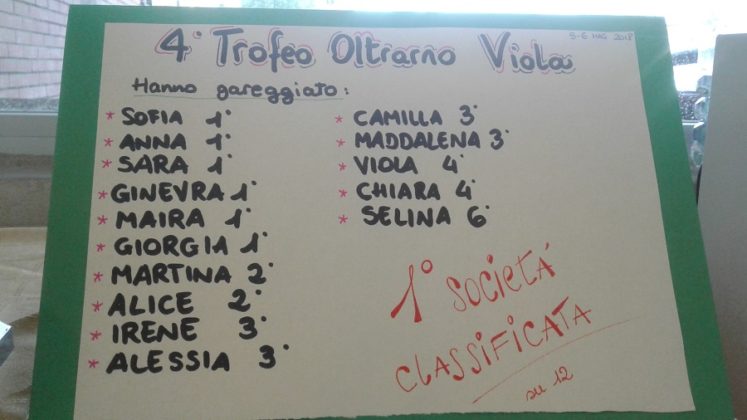 4° Trofeo Oltrarno Viola
5-6 MAG 2018
Hanno gareggiato:
* SOFIA 1°
* ANNA 1°
* SARA 1°
* GINEVRA 1°
* MAIRA 1°
* GIORGIA 1°
* MARTINA 2°
* ALICE 2°
* IRENE 3°
* ALESSIA 3°
* CAMILLA 3°
* MADDALENA 3°
* VIOLA 4°
* CHIARA 4°
* SELINA 6°
1° SOCIETÁ
CLASSIFICATA
su 12